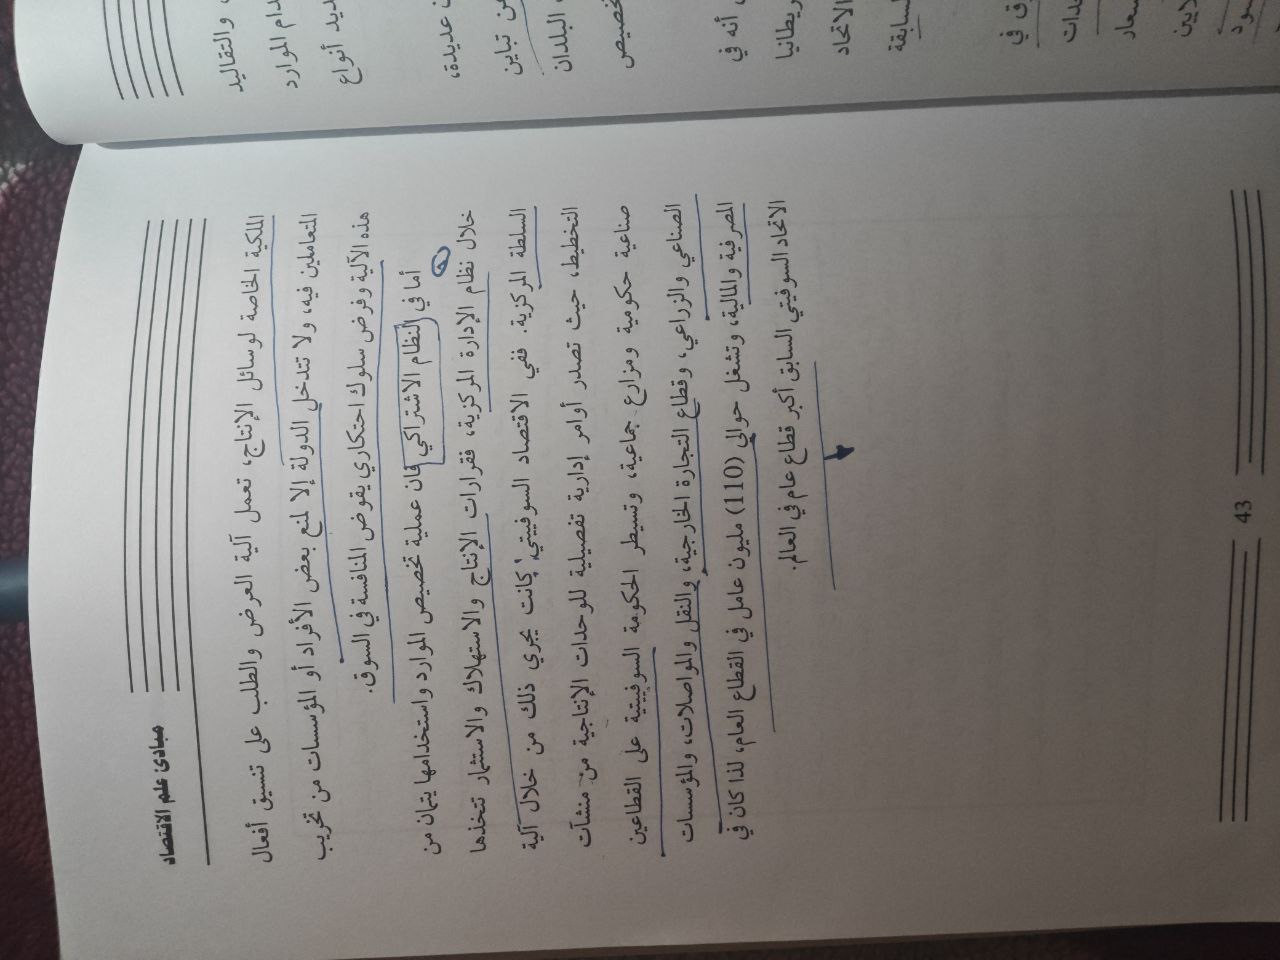 والتقاليد
الموارد
أنواع
عديدة،
تباين
البلدان
أنه في
الاتحاد
مبادئ علم الاقتصاد
الملكية الخاصة لوسائل الإنتاج، تعمل آلية العرض والطلب على تنسيق أفعال
المتعاملين فيه، ولا تتدخل الدولة إلا لمنع بعض الأفراد أو المؤسسات من تخريب
هذه الآلية وفرض سلوك احتكاري يقوض المنافسة في السوق.
أما في النظام الاشتراكي فان عملية تخصيص الموارد واستخدامها يتمان من
خلال نظام الإدارة المركزية، فقرارات الإنتاج والاستهلاك والاستثمار تتخذها
السلطة المركزية. ففي الاقتصاد السوفييتي، كانت يجري ذلك من خلال آلية
التخطيط، حيث تصدر أوامر إدارية تفصيلية للوحدات الإنتاجية من منشآت
صناعية حكومية ومزارع جماعية، وتسيطر الحكومة السوفييتية على القطاعين
الصناعي والزراعي، وقطاع التجارة الخارجية، والنقل والمواصلات، والمؤسسات
المصرفية والمالية، وتشغل حوالي (110) مليون عامل في القطاع العام، لذا كان في
الاتحاد السوفيتي السابق أكبر قطاع عام في العالم.
43